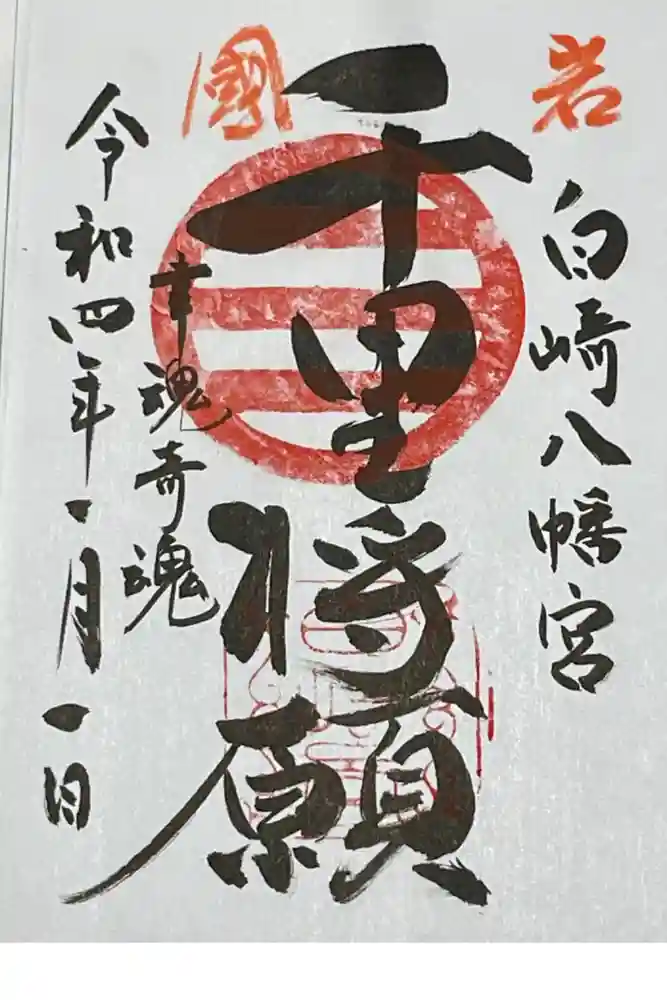 岩國
白崎八幡宮
千里將願
幸魂奇魂
令和四年一月一日